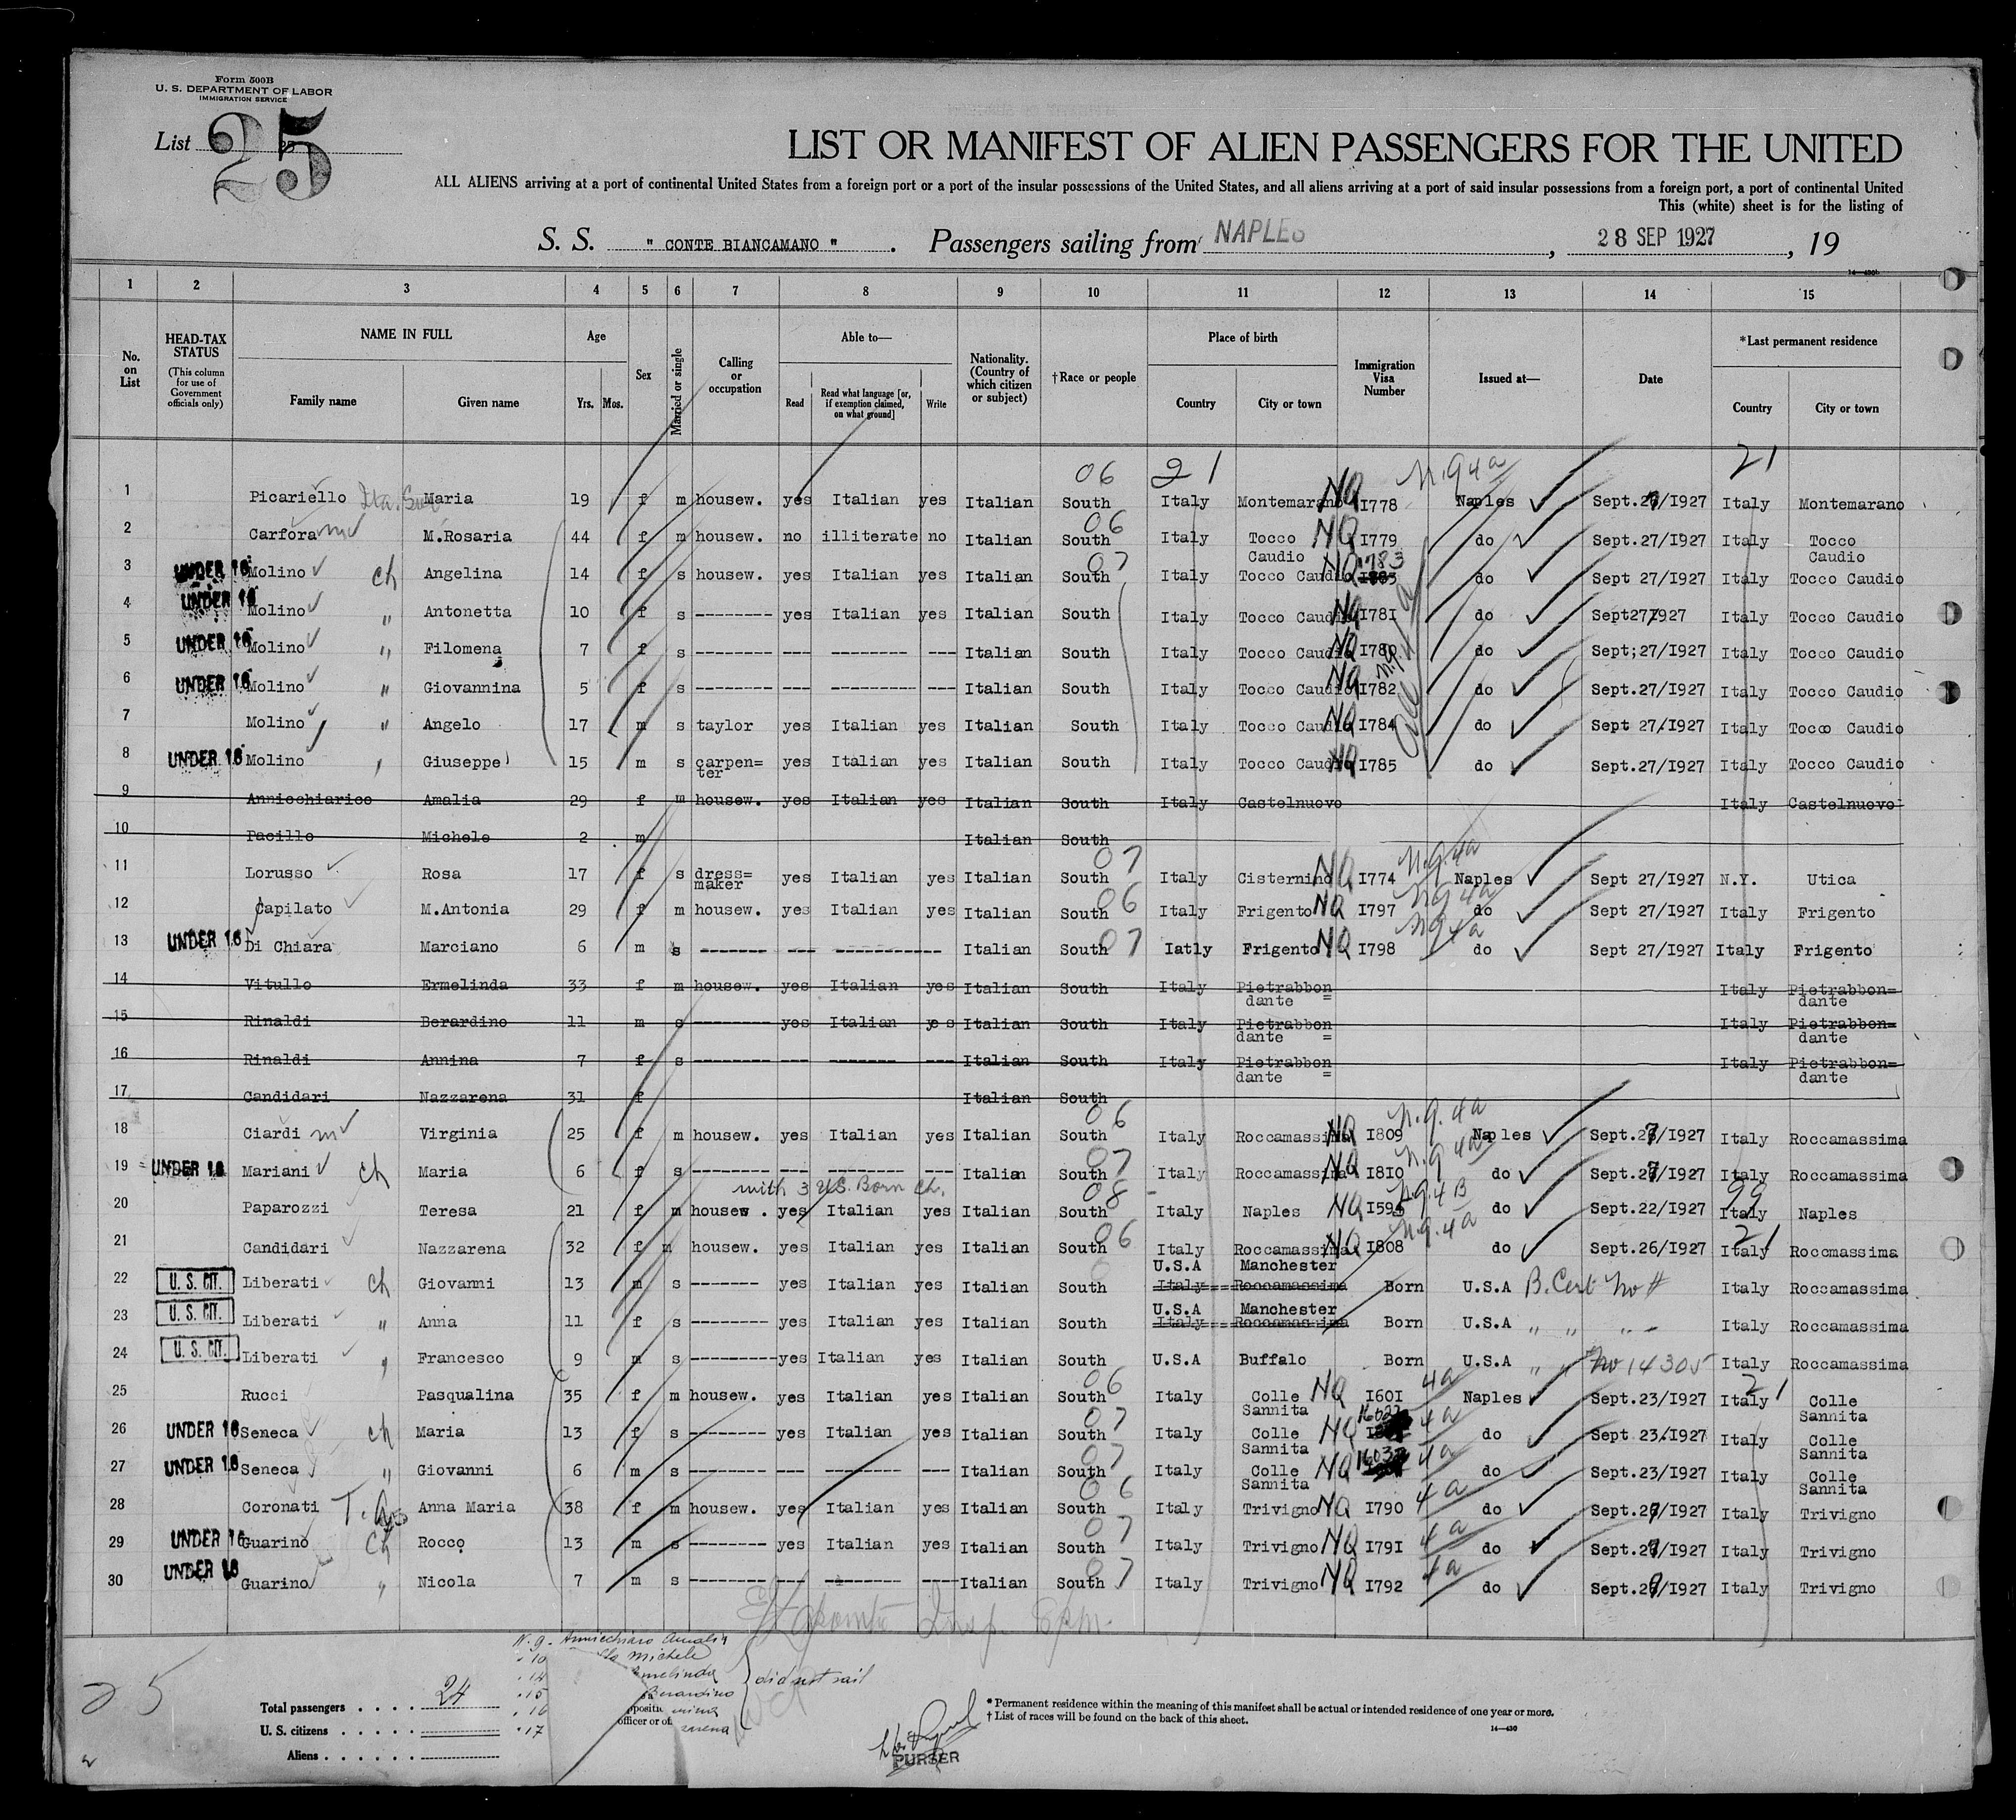 Form 500B
U. S. DEPARTMENT OF LABOR
IMMIGRATION SERVICE
List 25
LIST OR MANIFEST OF ALIEN PASSENGERS FOR THE UNITED
ALL ALIENS arriving at a port of continental United States from a foreign port or a port of the insular possessions of the United States, and all aliens arriving at a port of said insular possessions from a foreign port, a port of continental United
This (white) sheet is for the listing of
S. S. " CONTE BIANCAMANO " . Passengers sailing from NAPLES , 28 SEP 1927 , 19
1 2 3 4 5 6 7 8 9 10 11 12 13 14 15
No. on List
HEAD-TAX STATUS (This column for use of Government officials only)
NAME IN FULL Family name Given name
Age Yrs. Mos.
Sex
Married or single
Calling or occupation
Able to— Read Read what language [or, if exemption claimed, on what ground] Write
Nationality. (Country of which citizen or subject)
†Race or people
Place of birth Country City or town
Immigration Visa Number
Issued at—
Date
*Last permanent residence Country City or town
06 21 N.Q 4a 21
1 Picariello Maria 19 f m housew. yes Italian yes Italian South Italy Montemarano NQ I778 Naples Sept.27/1927 Italy Montemarano
2 Carfora m M.Rosaria 44 f m housew. no illiterate no Italian South 06 Italy Tocco Caudio NQ I779 do Sept.27/1927 Italy Tocco Caudio
3 UNDER 16 Molino ch Angelina 14 f s housew. yes Italian yes Italian South 07 Italy Tocco Caudio NQ 1783 do Sept 27/1927 Italy Tocco Caudio
4 UNDER 16 Molino " Antonetta 10 f s -------- yes Italian yes Italian South Italy Tocco Caudio NQ I781 do Sept27/1927 Italy Tocco Caudio
5 UNDER 16 Molino " Filomena 7 f s -------- --- -------- --- Italian South Italy Tocco Caudio NQ I780 do Sept;27/1927 Italy Tocco Caudio
6 UNDER 16 Molino " Giovannina 5 f s -------- --- -------- --- Italian South Italy Tocco Caudio NQ I782 do Sept.27/1927 Italy Tocco Caudio
7 Molino " Angelo 17 m s taylor yes Italian yes Italian South Italy Tocco Caudio NQ I784 do Sept 27/1927 Italy Tocco Caudio
8 UNDER 16 Molino " Giuseppe 15 m s carpen= ter yes Italian yes Italian South Italy Tocco Caudio NQ I785 do Sept.27/1927 Italy Tocco Caudio
9 Annicchiarico Amalia 29 f m housew. yes Italian yes Italian South Italy Castelnuovo Italy Castelnuovo
10 Pacillo Michele 2 m Italian South
11 Lorusso Rosa 17 f s dress= maker yes Italian yes Italian South 07 Italy Cisternino NQ I774 N.Q.4a Naples Sept 27/1927 N.Y. Utica
12 Capilato M.Antonia 29 f m housew. yes Italian yes Italian South 06 Italy Frigento NQ I797 NQ 4a do Sept 27/1927 Italy Frigento
13 UNDER 16 Di Chiara Marciano 6 m s ------- --- ----------- Italian South 07 Iatly Frigento NQ I798 NQ 4a do Sept 27/1927 Italy Frigento
14 Vitullo Ermelinda 33 f m housew. yes Italian yes Italian South Italy Pietrabbon= dante Italy Pietrabbon= dante
15 Rinaldi Berardino 11 m s -------- yes Italian yes Italian South Italy Pietrabbon= dante Italy Pietrabbon= dante
16 Rinaldi Annina 7 f s -------- --- ------- --- Italian South Italy Pietrabbon= dante Italy Pietrabbon= dante
17 Candidari Nazzarena 31 f Italian South
18 Ciardi m Virginia 25 f m housew. yes Italian yes Italian South 06 Italy Roccamassima NQ I809 N.Q. 4a Naples Sept.27/1927 Italy Roccamassima
19 UNDER 16 Mariani ch Maria 6 f s -------- --- -------- --- Italian South 07 Italy Roccamassima NQ I8I0 N.Q 4a do Sept.27/1927 Italy Roccamassima
with 3 U.S. Born Ch.
20 Paparozzi Teresa 21 f m housew . yes Italian yes Italian South 08 Italy Naples NQ I594 N.Q.4B do Sept.22/1927 99 Italy Naples
21 Candidari Nazzarena 32 f m housew. yes Italian yes Italian South 06 Italy Roccamassima NQ I808 N.Q.4a do Sept.26/1927 21 Italy Roccmassima
22 U. S. CIT. Liberati ch Giovanni 13 m s ------- yes Italian yes Italian South U.S.A Manchester Italy===Roccamassima Born U.S.A B.Cert No # Italy Roccamassima
23 U. S. CIT. Liberati " Anna 11 f s -------- yes Italian yes Italian South U.S.A Manchester Italy===Roccamassima Born U.S.A " " " - Italy Roccamassima
24 U. S. CIT. Liberati " Francesco 9 m s --------- yes Italian yes Italian South U.S.A Buffalo Born U.S.A " " No 14305 Italy Roccamassima
25 Rucci Pasqualina 35 f m housew. yes Italian yes Italian South 06 Italy Colle Sannita NQ I60I 4a Naples Sept.23/1927 21 Italy Colle Sannita
26 UNDER 16 Seneca ch Maria 13 f s -------- yes Italian yes Italian South 07 Italy Colle Sannita NQ 1602 4a do Sept 23/1927 Italy Colle Sannita
27 UNDER 16 Seneca " Giovanni 6 m s -------- --- -------- --- Italian South 07 Italy Colle Sannita NQ 1603 4a do Sept.23/1927 Italy Colle Sannita
28 Coronati Anna Maria 38 f m housew. yes Italian yes Italian South 06 Italy Trivigno NQ I790 4a do Sept.27/1927 Italy Trivigno
29 UNDER 16 Guarino ch Rocco 13 m s -------- yes Italian yes Italian South 07 Italy Trivigno NQ I79I 4a do Sept.27/1927 Italy Trivigno
30 UNDER 16 Guarino " Nicola 7 m s -------- --- -------- ---- Italian South 07 Italy Trivigno NQ I792 4a do Sept.27/1927 Italy Trivigno
Insp.
25
Amalia
" 10 Michele
" 14
" 15 Berardino
" 16
" 17
did not sail
Total passengers . . . . 24
U. S. citizens . . . . .
Aliens . . . . . .
officer or of
PURSER
* Permanent residence within the meaning of this manifest shall be actual or intended residence of one year or more.
† List of races will be found on the back of this sheet.
14—430